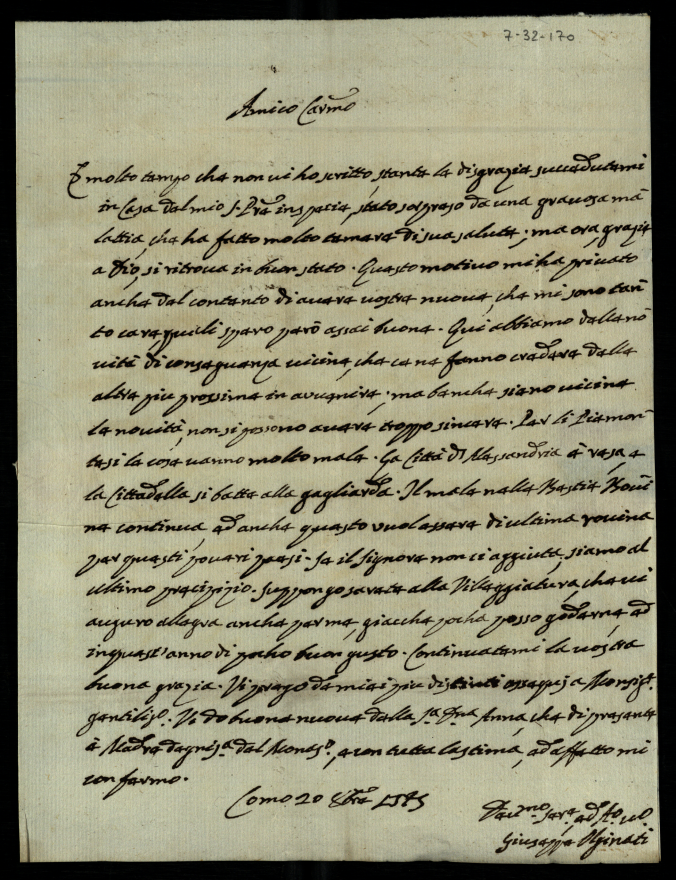 7-32-170
Amico Car.mo
È molto tempo che non vi ho scritto, stante le disgrazie succedutemi
in Casa del mio S. Pre in specie, stato sorpreso da una gravosa ma
lattia, che ha fatto molto temere di sua salute; ma ora, grazie
a Dio, si ritrova in buon stato. Questo motivo mi ha privato
anche del contento di avere vostre nuove, che mi sono tan
to care, quali spero però assai buone. Qui abbiamo delle no
vità di conseguenza vicine, che ce ne fanno credere delle
altre piu prossime in avvenire; ma benche siano vicine
le novità, non si possono avere troppo sincere. Per li Piemon
tesi le cose vanno molto male. La Città di Alessandria è resa e
la Cittadella si batte alla gagliarda. Il male nelle Bestie Bovi
ne continua ed anche questo vuol essere di ultima rovina
per questi poveri paesi. Se il Signore non ci aggiuta, siamo al
ultimo precipizio. Suppongo sarete alla Villeggiatura, che vi
auguro allegra anche per me, giacche poche posso goderne ed
in quest'anno di pocho buon gusto. Continuatemi la vostra
buona grazia. Vi prego de miei piu distinti ossequj a Monsig.r
gentiliss.o. Vi do buone nuove della S.ra D.na Anna, che di presente
è Madre degniss.a del Monas.o, e con tutta la stima, ed affetto mi
confermo.
Como 20 8bre 1745
Dev.mo Ser.e ed A.o v.o
Giuseppe Olginati